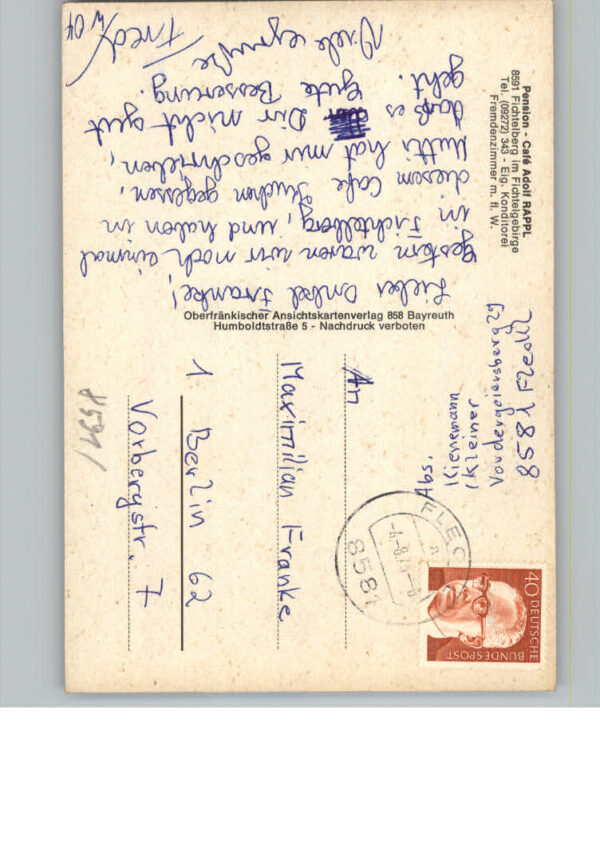 Pension - Café Adolf RAPPL
8591 Fichtelberg im Fichtelgebirge
Tel. (09272) 343 - Eig. Konditorei
Fremdenzimmer m. fl. W.
Lieber Onkel Franke!
Gestern waren wir noch einmal
in Fichtelberg, und haben in
diesem Cafe Kuchen gegessen.
Mutti hat mir geschrieben,
daß es Dir nicht gut
geht. Gute Besserung.
Viele Grüße
Fred
Oberfränkischer Ansichtskartenverlag 858 Bayreuth
Humboldtstraße 5 - Nachdruck verboten
Abs.
8581
40 DEUTSCHE
BUNDESPOST
An
Maximilian Franke
1 Berlin 62
Vorbergstr. 7
8591